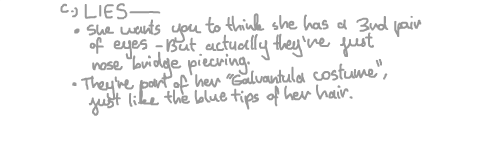 C.) LIES—
• She wants you to think she has a 3rd pair
of eyes - But actually they're just
nose bridge piecring.
• They're part of her "Galvantula costume",
just like the blue tips of her hair.